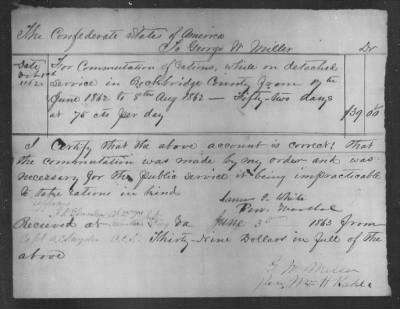 The Confederate States of America
To George W Miller Dr
For Commutation of Rations, while on detached
Service in Rockbridge County from
June 1862 to 8th Aug 1862 — Fifty-two days
at 75 cts Per day $39 00
I Certify that the above account is correct; that
the commutation was made by my order and was
necessary for the public service it being impracticable
to take rations in kind
James J. White
Prov. Marshal
Received at Va June 1863 from
Thirty-Nine Dollars in full of the
above
G W Miller
Wm H Kable